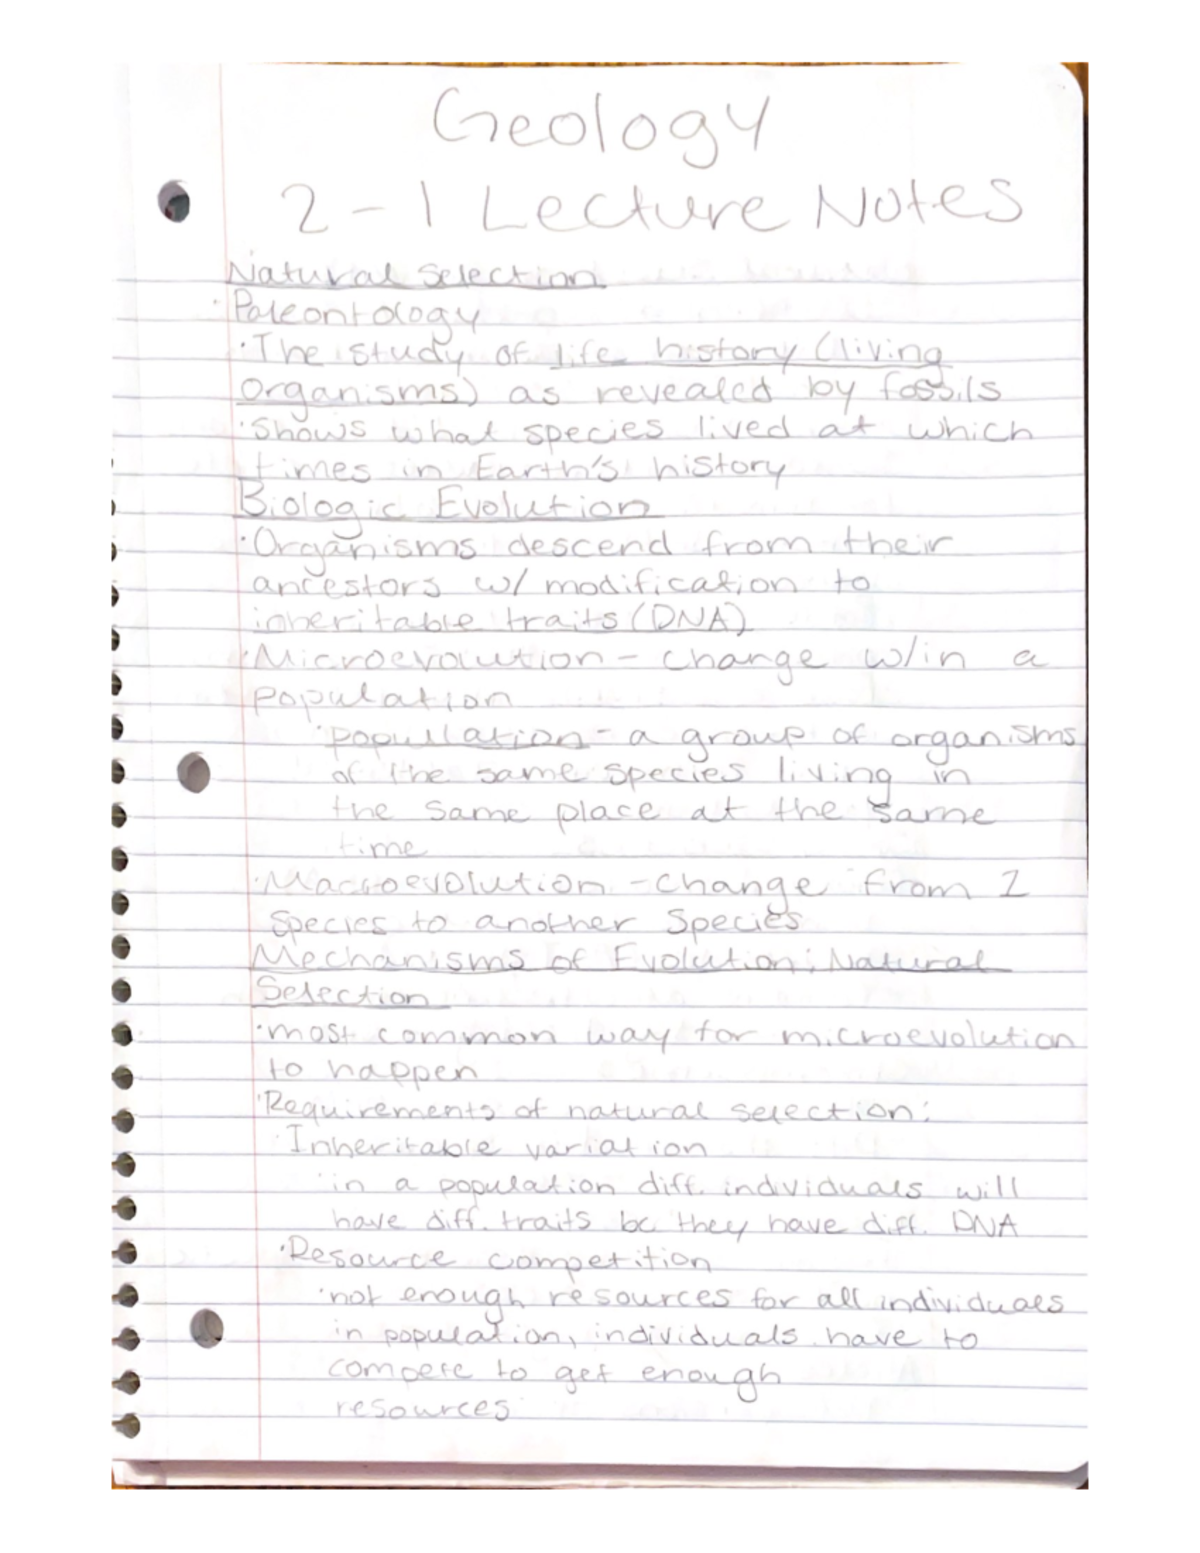 Geology
2-1 Lecture Notes
Natural Selection
· Paleontology
· The study of life history (living
organisms) as revealed by fossils
· Shows what species lived at which
times in Earth's history
Biologic Evolution
· Organisms descend from their
ancestors w/ modification to
inheritable traits (DNA)
· Microevolution - change w/in a
population
· popullation - a group of organisms
of the same species living in
the same place at the same
time
· Macroevolution - change from 1
species to another species
Mechanisms of Evolution: Natural
Selection
· most common way for microevolution
to happen
· Requirements of natural selection:
· Inheritable variation
· in a population diff. individuals will
have diff. traits bc they have diff. DNA
· Resource competition
· not enough resources for all individuals
in population, individuals have to
compete to get enough
resources